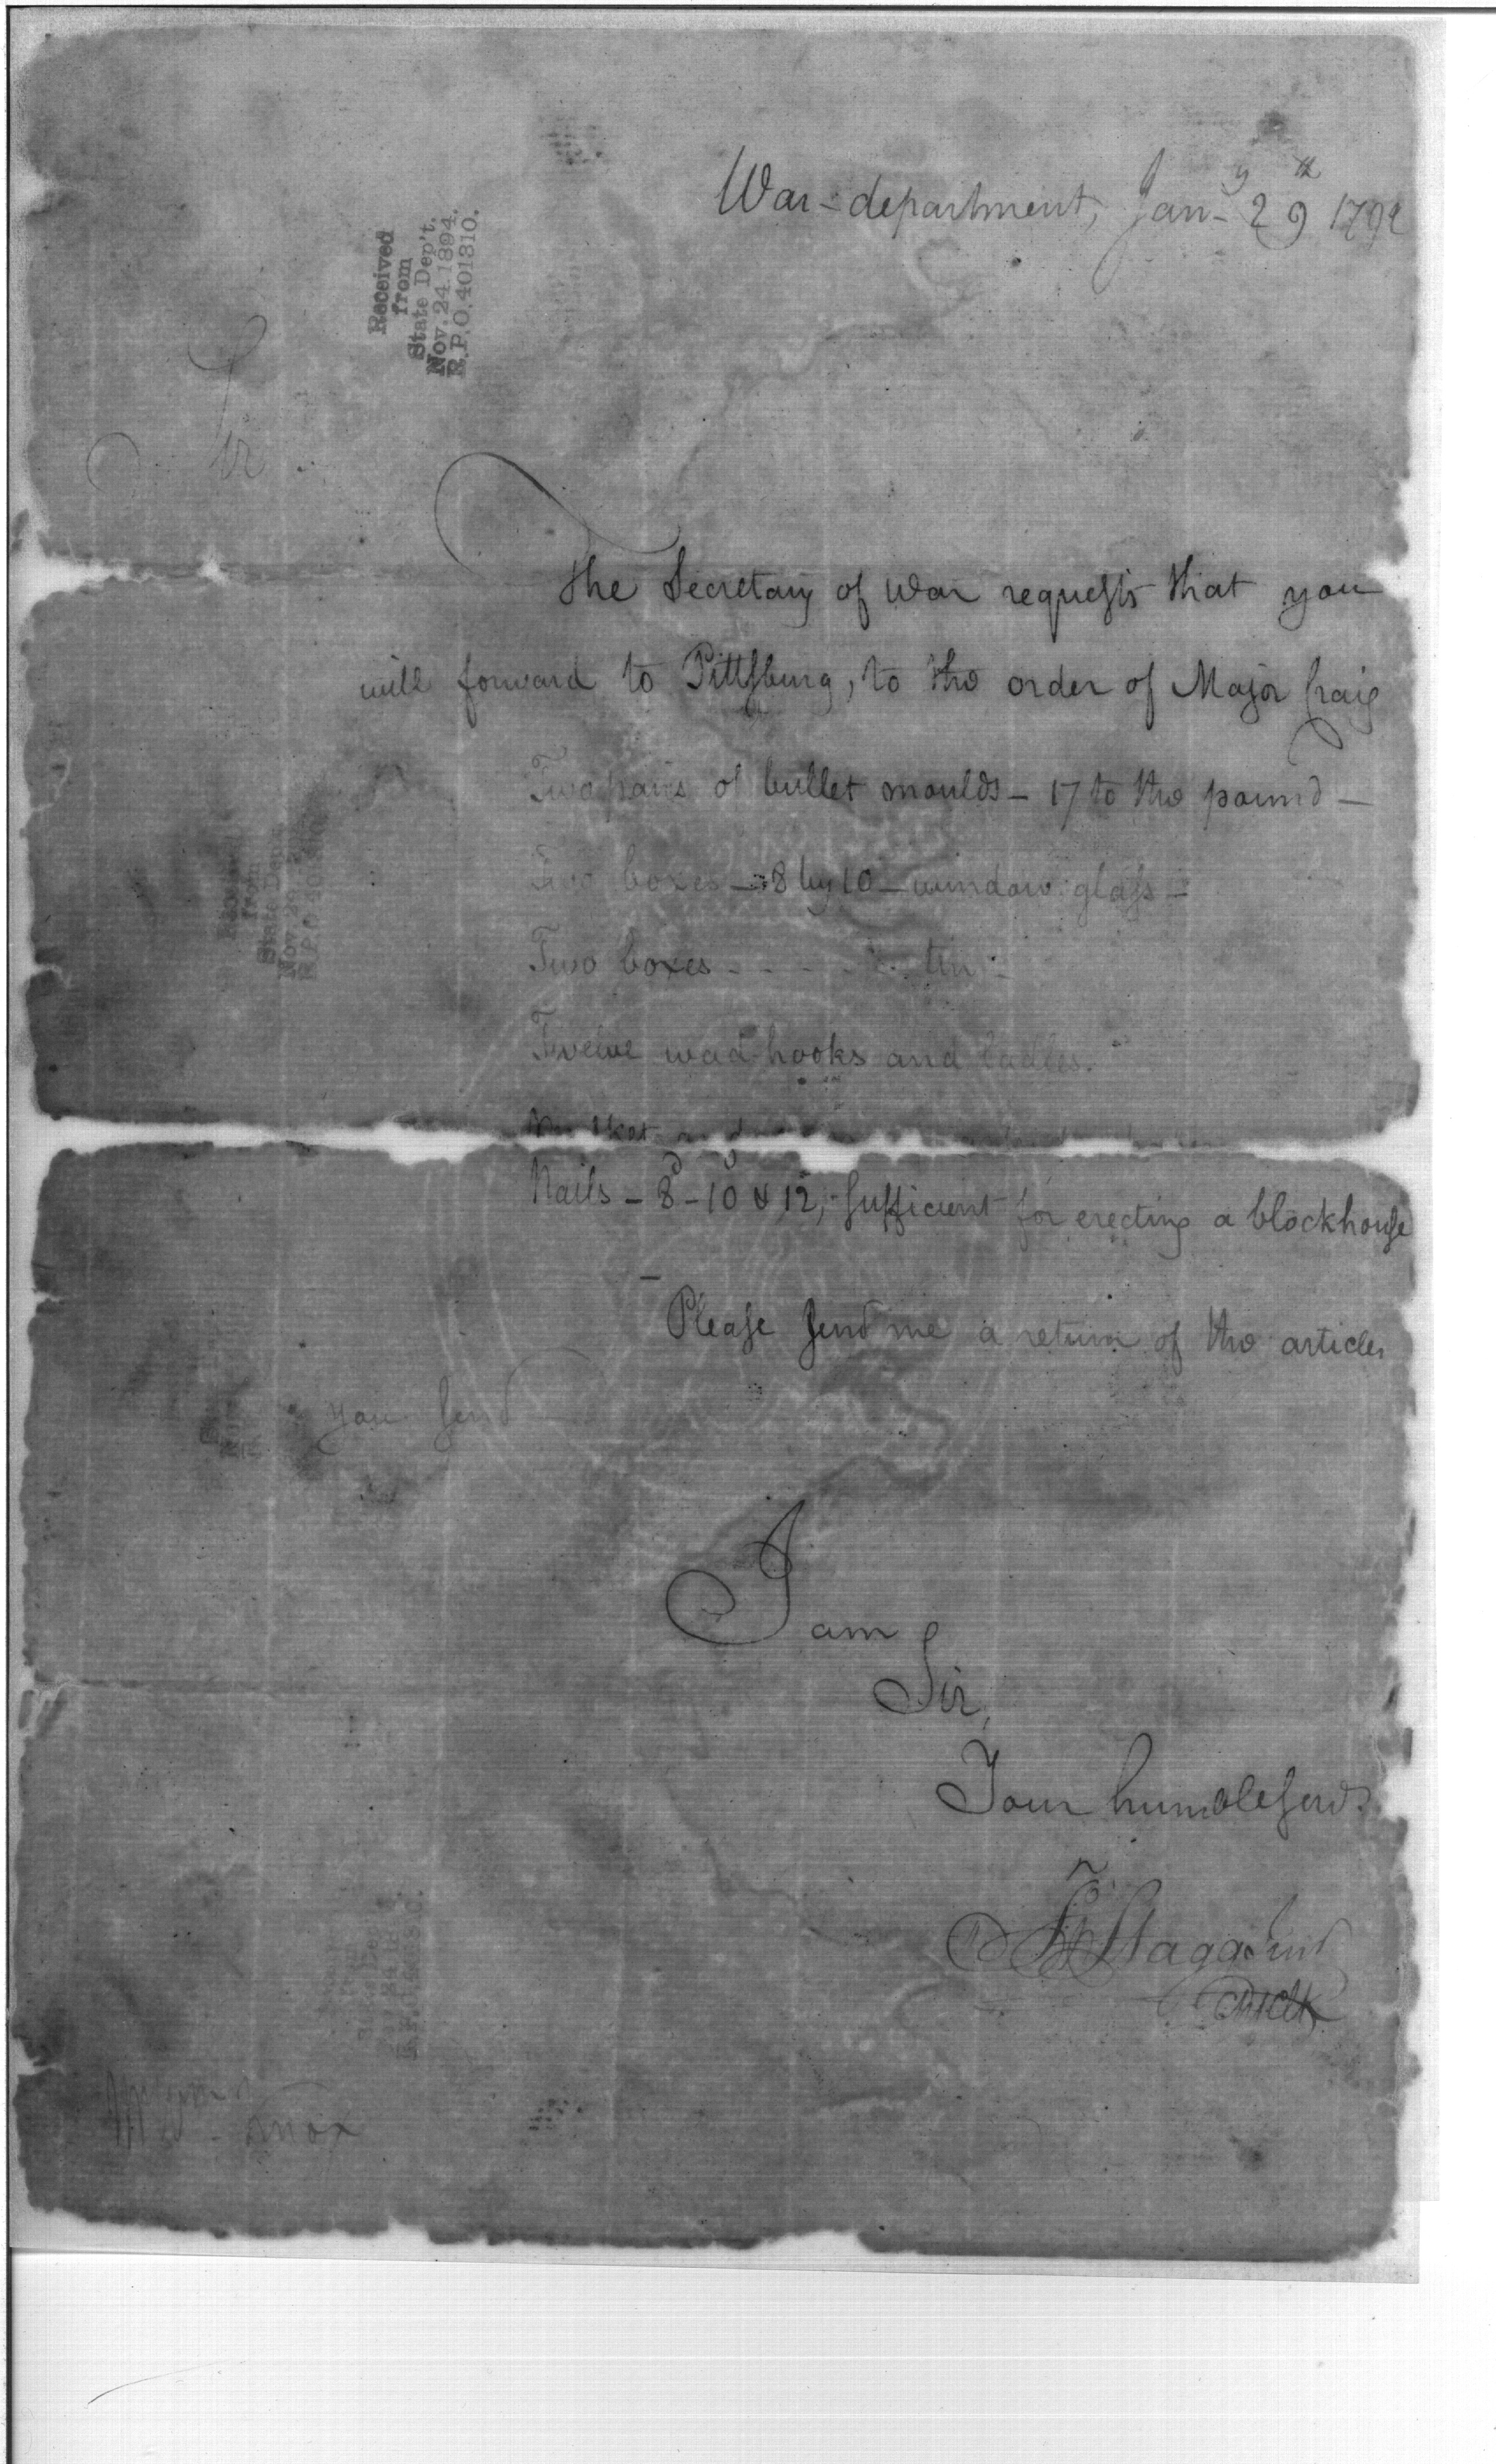 War-department, Jan.y 29th 1792
Received
from
State Dep't.
Nov. 24. 1894.
R.P.O. 401310.
Sir
The Secretary of War requests that you
will forward to Pittsburg, to the order of Major Craig
Two pairs of bullet moulds – 17 to the pound –
Two boxes – 8 by 10 – window glass –
Two boxes - - - - tin –
Twelve wad-hooks and ladles.
Nails – 8d – 10 & 12, sufficient for erecting a blockhouse
Please send me a return of the articles
you send
I am
Sir,
Your humble servt.
Jn Stagg Junr
Ch Clk